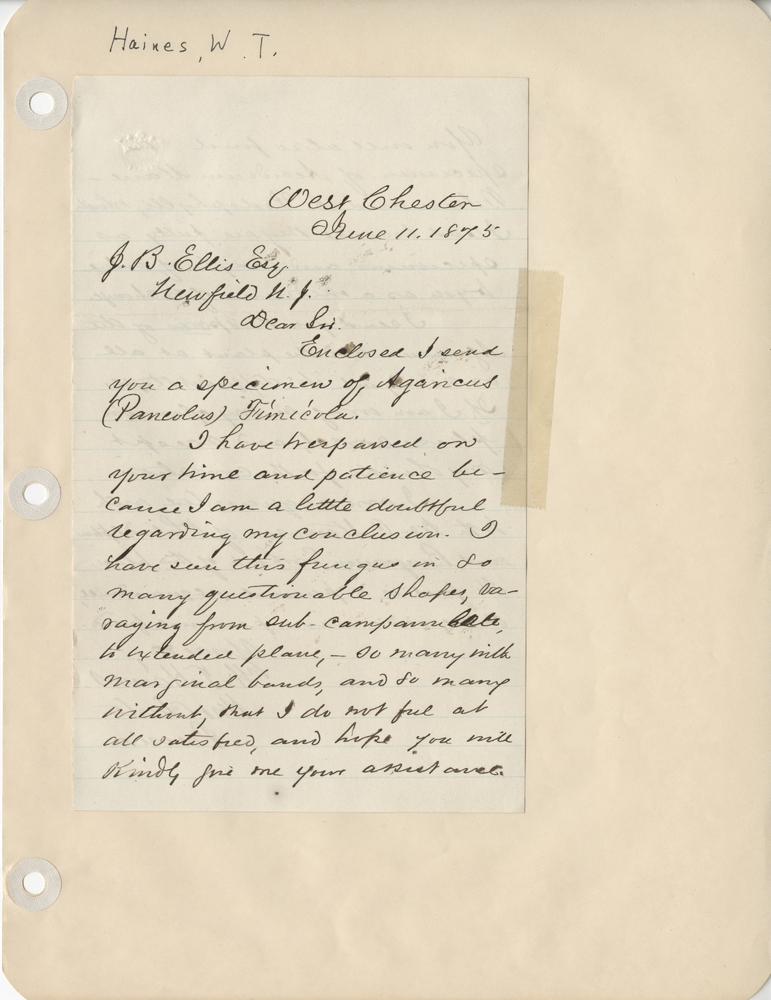 Haines, W. T.
West Chester
June 11. 1875
J. B. Ellis Esq
Newfield N. J.
Dear Sir.
Enclosed I send
you a specimen of Agaricus
(Paneolus) Fimicola.
I have trespassed on
your time and patience be-
cause I am a little doubtful
regarding my conclusion. I
have seen this fungus in so
many questionable shapes, va-
raying from sub-campanulate,
to extended plane, - so many with
marginal bands, and so many
without, that I do not feel at
all satisfied, and hope you will
kindly give me your assistance.